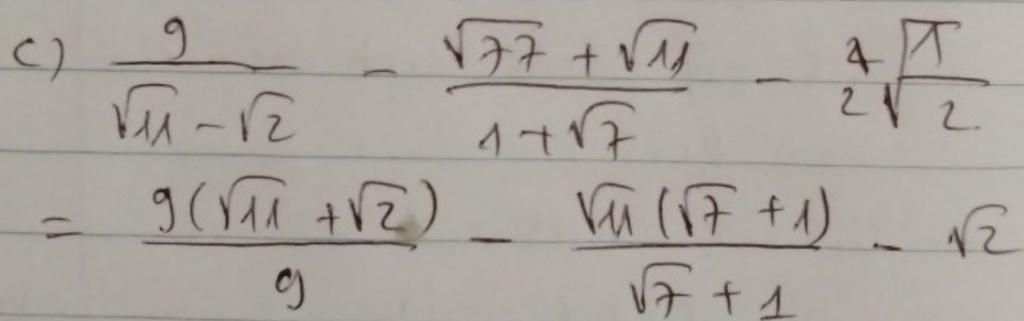 c) \frac{9}{\sqrt{11} - \sqrt{2}} - \frac{\sqrt{77} + \sqrt{11}}{1 + \sqrt{7}} - \frac{4}{2}\sqrt{\frac{1}{2}}
= \frac{9(\sqrt{11} + \sqrt{2})}{9} - \frac{\sqrt{11}(\sqrt{7} + 1)}{\sqrt{7} + 1} - \sqrt{2}